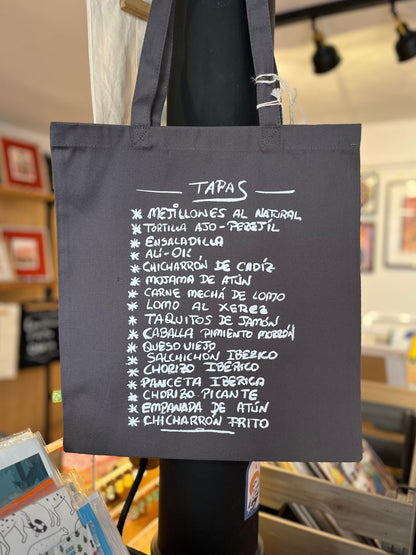 TAPAS
* MEJILLONES AL NATURAL
* TORTILLA AJO-PEREJIL
* ENSALADILLA
* ALI-OLI
* CHICHARRÓN DE CADIZ
* MOJAMA DE ATÚN
* CARNE MECHÁ DE LOMO
* LOMO AL XEREZ
* TAQUITOS DE JAMÓN
* CABALLA PIMIENTO MORRÓN
* QUESO VIEJO
* SALCHICHÓN IBERICO
* CHORIZO IBERICO
* PANCETA IBÉRICA
* CHORIZO PICANTE
* EMPANADA DE ATÚN
* CHICHARRÓN FRITO